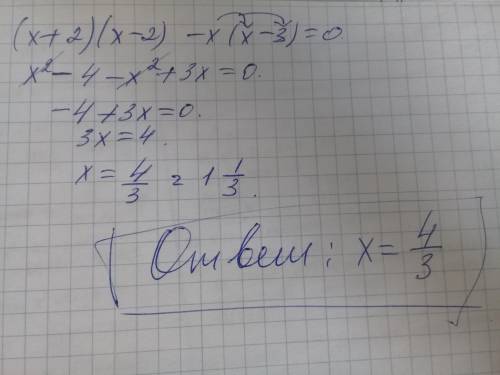 (x+2)(x-2) -x(x-3)=0
x²-4-x²+3x=0.
-4+3x=0.
3x=4.
x=4/3 = 1 1/3.
Ответ: x=4/3